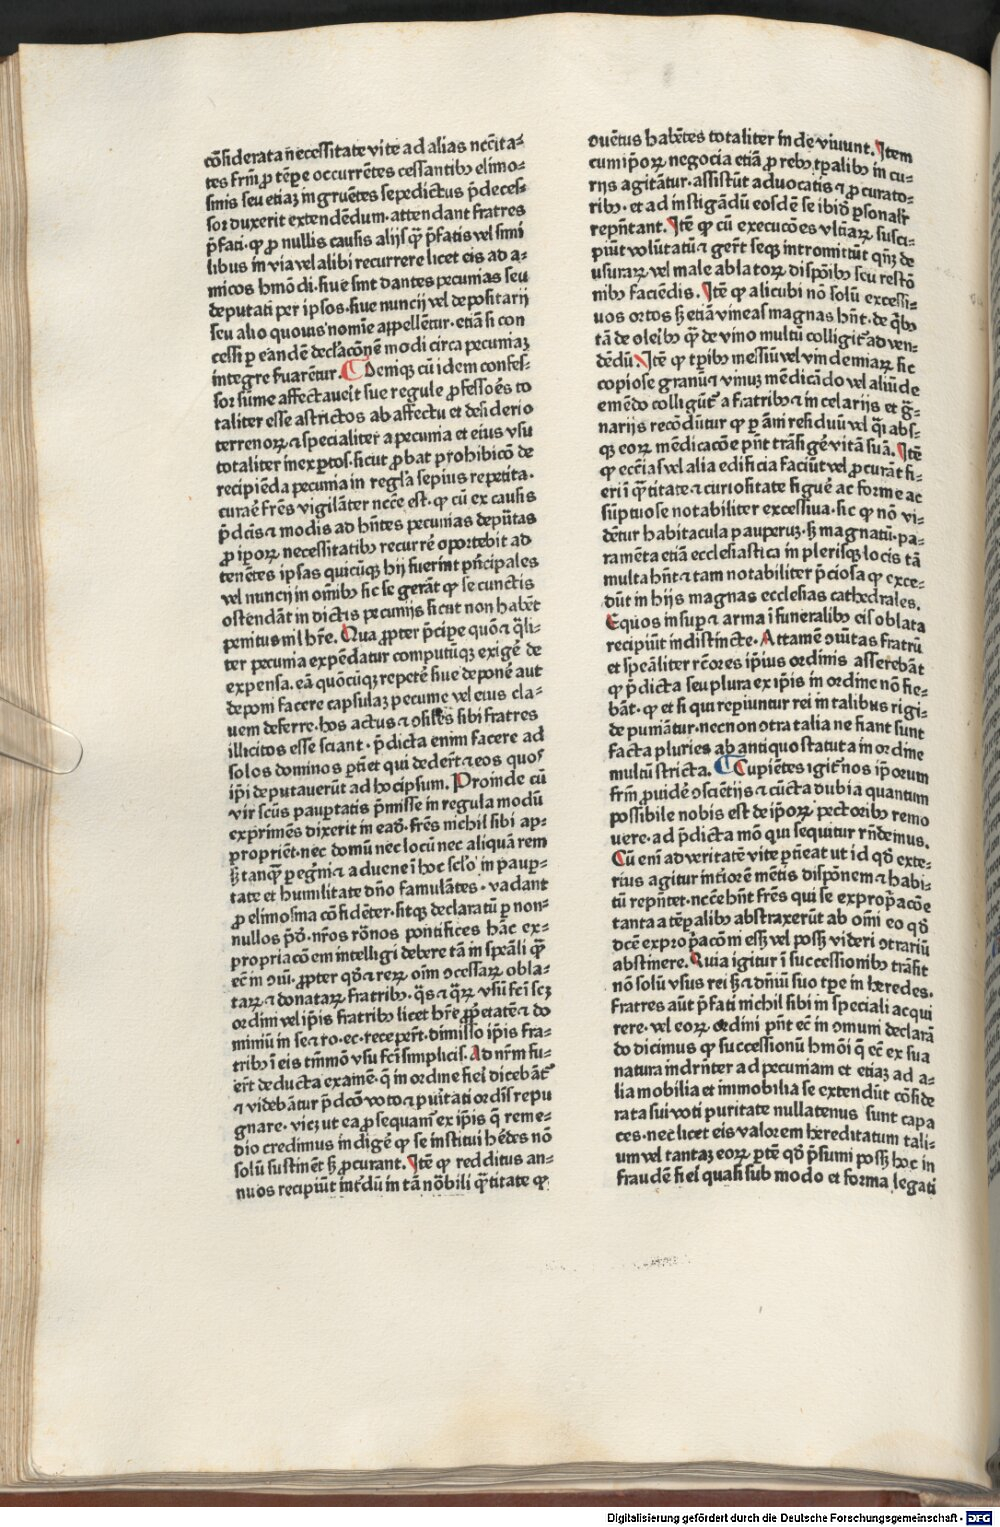 cōsiderata necessitate vite ad alias nccita⸗
tes frm̄ ꝓ tēꝑe occurrētes cessantibꝰ elimo⸗
sinis seu etiaꝫ ingruētes sepedictus p̄deces⸗
sor duxerit extendēdum. attendant fratres
p̄fati. ꝙ ꝓ nullis causis alijs ꝗ̄ p̄fatis vel simi
libus in via vel alibi recurrere licet eis ad a⸗
micos hmōdi. siue sint dantes pecunias seu
deputati per ipsos. siue nuncij vel depositarij
seu alio quouis nomīe appellētur. etiā si con
cessi ꝑ eandē decl̄acōnē modi circa pecuniaꝫ
integre ẜuarētur. Deniqꝫ cū idem confes⸗
sor sūme affectaueīt sue regule ꝓfessoēs to
taliter esse astrictos ab affectu et desiderio
terrenoꝝ ⁊ specialiter a pecunia et eius vsu
totaliter inexꝑtos. sicut ꝓbat prohibicō de
recipiēda pecunia in regl̄a sepius repetita.
curaē frēs vigilāter ncc̄e est. ꝙ cū ex causis
p̄dc̄is ⁊ modis ad hn̄tes pecunias deputatas
ꝓ ip̄oꝝ necessitatibꝰ recurrē oportebit ad
tenētes ipsas quicūqꝫ hij fuerint pn̄cipales
vel nuncij in om̄ibꝰ sic se gerāt ꝙ se cunctis
ostendāt in dictis pecunijs sicut non habēt
penitus nil hr̄e. Qua ꝓpter p̄ciꝑe quō ⁊ q̄li⸗
ter pecunia expēdatur computūqꝫ exigē de
expensa. eā quōcūqꝫ repetē siue deponē aut
deponi facere capsulaꝫ pecunie vel eius cla⸗
uem deferre. hos actus ⁊ ↄsil̄es sibi fratres
illicitos esse sciant. p̄dicta enim facere ad
solos dominos ꝑtīet qui dederūt ⁊ eos quos
ip̄i deputauerūt ad hoc ipsum. Proinde cū
vir sc̄us pauꝑtatis p̄misse in regula modū
exprimēs dixerit in ead̄. frēs nichil sibi ap⸗
propriēt. nec domū nec locū nec aliquā rem
ꝫ tanꝗ̄ ꝑegn̄i ⁊ aduene ī hoc scl̄o in pauꝑ⸗
tate et humilitate dn̄o famulātes. vadant
ꝓ elimosina cōfidēter. sitqꝫ declaratū ꝑ non⸗
nullos p̄d̄. nr̄os rōnos pontifices hāc ex⸗
propriacōem intelligi debere tā in speāli ꝗ̄
ec̄ in ↄm̄ū. ꝓpter qd̄ ⁊ rerꝝ oīm ↄcessarꝝ obla⸗
tarꝝ ⁊ donatarꝝ fratribꝰ. q̄s ⁊ q̄rꝝ vsū fc̄i scꝫ
ordini vel ip̄is fratribꝰ licet hr̄e ꝓp̄etatē ⁊ do
miniū in se ⁊ ro. ec. receper̄t. dimisso ip̄is fra⸗
tribꝰ ī eis tm̄mō vsu fc̄i simplicis. Ad nr̄m fu⸗
er̄t deducta examē. q̄ in ordine fiei dicebāt̄
⁊ videbātur p̄dc̄o voto ⁊ puītati ordīs repu
gnare. vicꝫ ut ea ꝓsequam̄ ex ip̄is q̄ reme⸗
dio credimus indigē ꝙ se institui hēdes nō
solū sustinēt ꝫ ꝓcurant. Itē ꝙ redditus an⸗
nuos recipiūt int̄dū in tā nōbili ꝗ̄titate ꝙ
ↄuētus habētes totaliter inde viuunt. Item
cum ip̄oꝝ negocia etiā ꝓ rebꝰ tꝑalibꝰ in cu⸗
rijs agitātur. assistūt aduocatis ⁊ ꝓcurato⸗
ribꝰ. et ad instigādū eosdē se ibid̄ ꝑsonalr̄
repn̄tant. Itē ꝙ cū execucōes vltīarꝝ susci⸗
piūt volūtatū ⁊ ger̄t seqꝫ intromittūt qn̄qꝫ de
usurarꝝ vel male ablatorꝝ dispōibꝰ seu restō
nibꝰ faciēdis. Itē ꝙ alicubi nō solū excessi⸗
uos ortos ꝫ etiā vineas magnas hn̄t. de q̄bꝰ
tā de oleībꝰ ꝗ̄ de vino multū colligit̄ ad ven⸗
dēdū. Itē ꝙ tꝑibꝰ messiū vel vindemiarꝝ sic
copiose granū ⁊ vinuꝫ mēdicādo vel aliūde
emēdo colligūt̄ a fratribꝰ ⁊ in celarijs et ḡ⸗
narijs recōdūtur ꝙ ꝑ ām̄ residuū vel q̄ī abs⸗
qꝫ eorꝝ mēdicacōe pn̄t trāsigē vitā suā. Itē
ꝙ ecc̄ias vel alia edificia faciūt vel ꝓcurāt fi⸗
eri ī ꝗ̄titate ⁊ curiositate figuē ac forme ac
sūptuose notabiliter excessiua. sic ꝙ nō vi⸗
dētur habitacula pauperuꝫ. ꝫ magnatū. pa⸗
ramēta etiā ecclesiastica in plerisqꝫ locis tā
multa hn̄t ⁊ tam notabiliter p̄ciosa ꝙ exce⸗
dūt in hijs magnas ecclesias cathedrales.
Equos insuꝑ ⁊ arma ī funeralibꝰ eis oblata
recipiūt indistincte. Attamē ↄm̄itas fratrū
et speāliter rc̄ores ip̄ius ordinis asserebāt
ꝙ p̄dicta seu plura ex ip̄is in ordine nō fie⸗
bāt. ꝙ et si qui reperiuntur rei in talibus rigi⸗
de puniātur. necnon ↄtra talia ne fiant sunt
facta pluries ab antiquo statuta in ordine
multū stricta. Cupiētes igit̄ nos ip̄orum
frm̄ ꝓuidē ↄsciētijs ⁊ cūcta dubia quantum
possibile nobis est de ip̄orꝝ pectoribꝰ remo
uere. ad p̄dicta mō qui sequitur rn̄demus.
Cū enī ad veritatē vite ꝑtīeat ut id qd̄ exte⸗
rius agitur intīorē mētis disꝑonem ⁊ habi⸗
tū repn̄tet. ncc̄e hn̄t frēs qui se expropacōe
tanta a tēꝑalibꝰ abstraxerūt ab om̄i eo qd̄
dc̄e expropacōni esꝫ vel posꝫ videri ↄtrariū
abstinere. Quia igitur ī successionibꝰ trāsit
nō solū vsus rei ꝫ ⁊ dn̄iū suo tꝑe in heredes.
Fratres aūt p̄fati nichil sibi in speciali acqui
rere. vel eorꝝ ordini pn̄t ec̄ in ↄmuni declarā
do dicimus ꝙ successionū hmōi q̄ ec̄ ex sua
natura indrn̄ter ad pecuniam et etiaꝫ ad a⸗
lia mobilia et immobilia se extendūt cōside
rata sui voti puritate nullatenus sunt capa
ces. nec licet eis valorem hereditatum tali⸗
um vel tantaꝫ eorꝝ ꝑtē qd̄ p̄sumi posꝫ hoc in
fraudē fiei quasi sub modo et forma legati
Digitalisierung gefördert durch die Deutsche Forschungsgemeinschaft - DFG